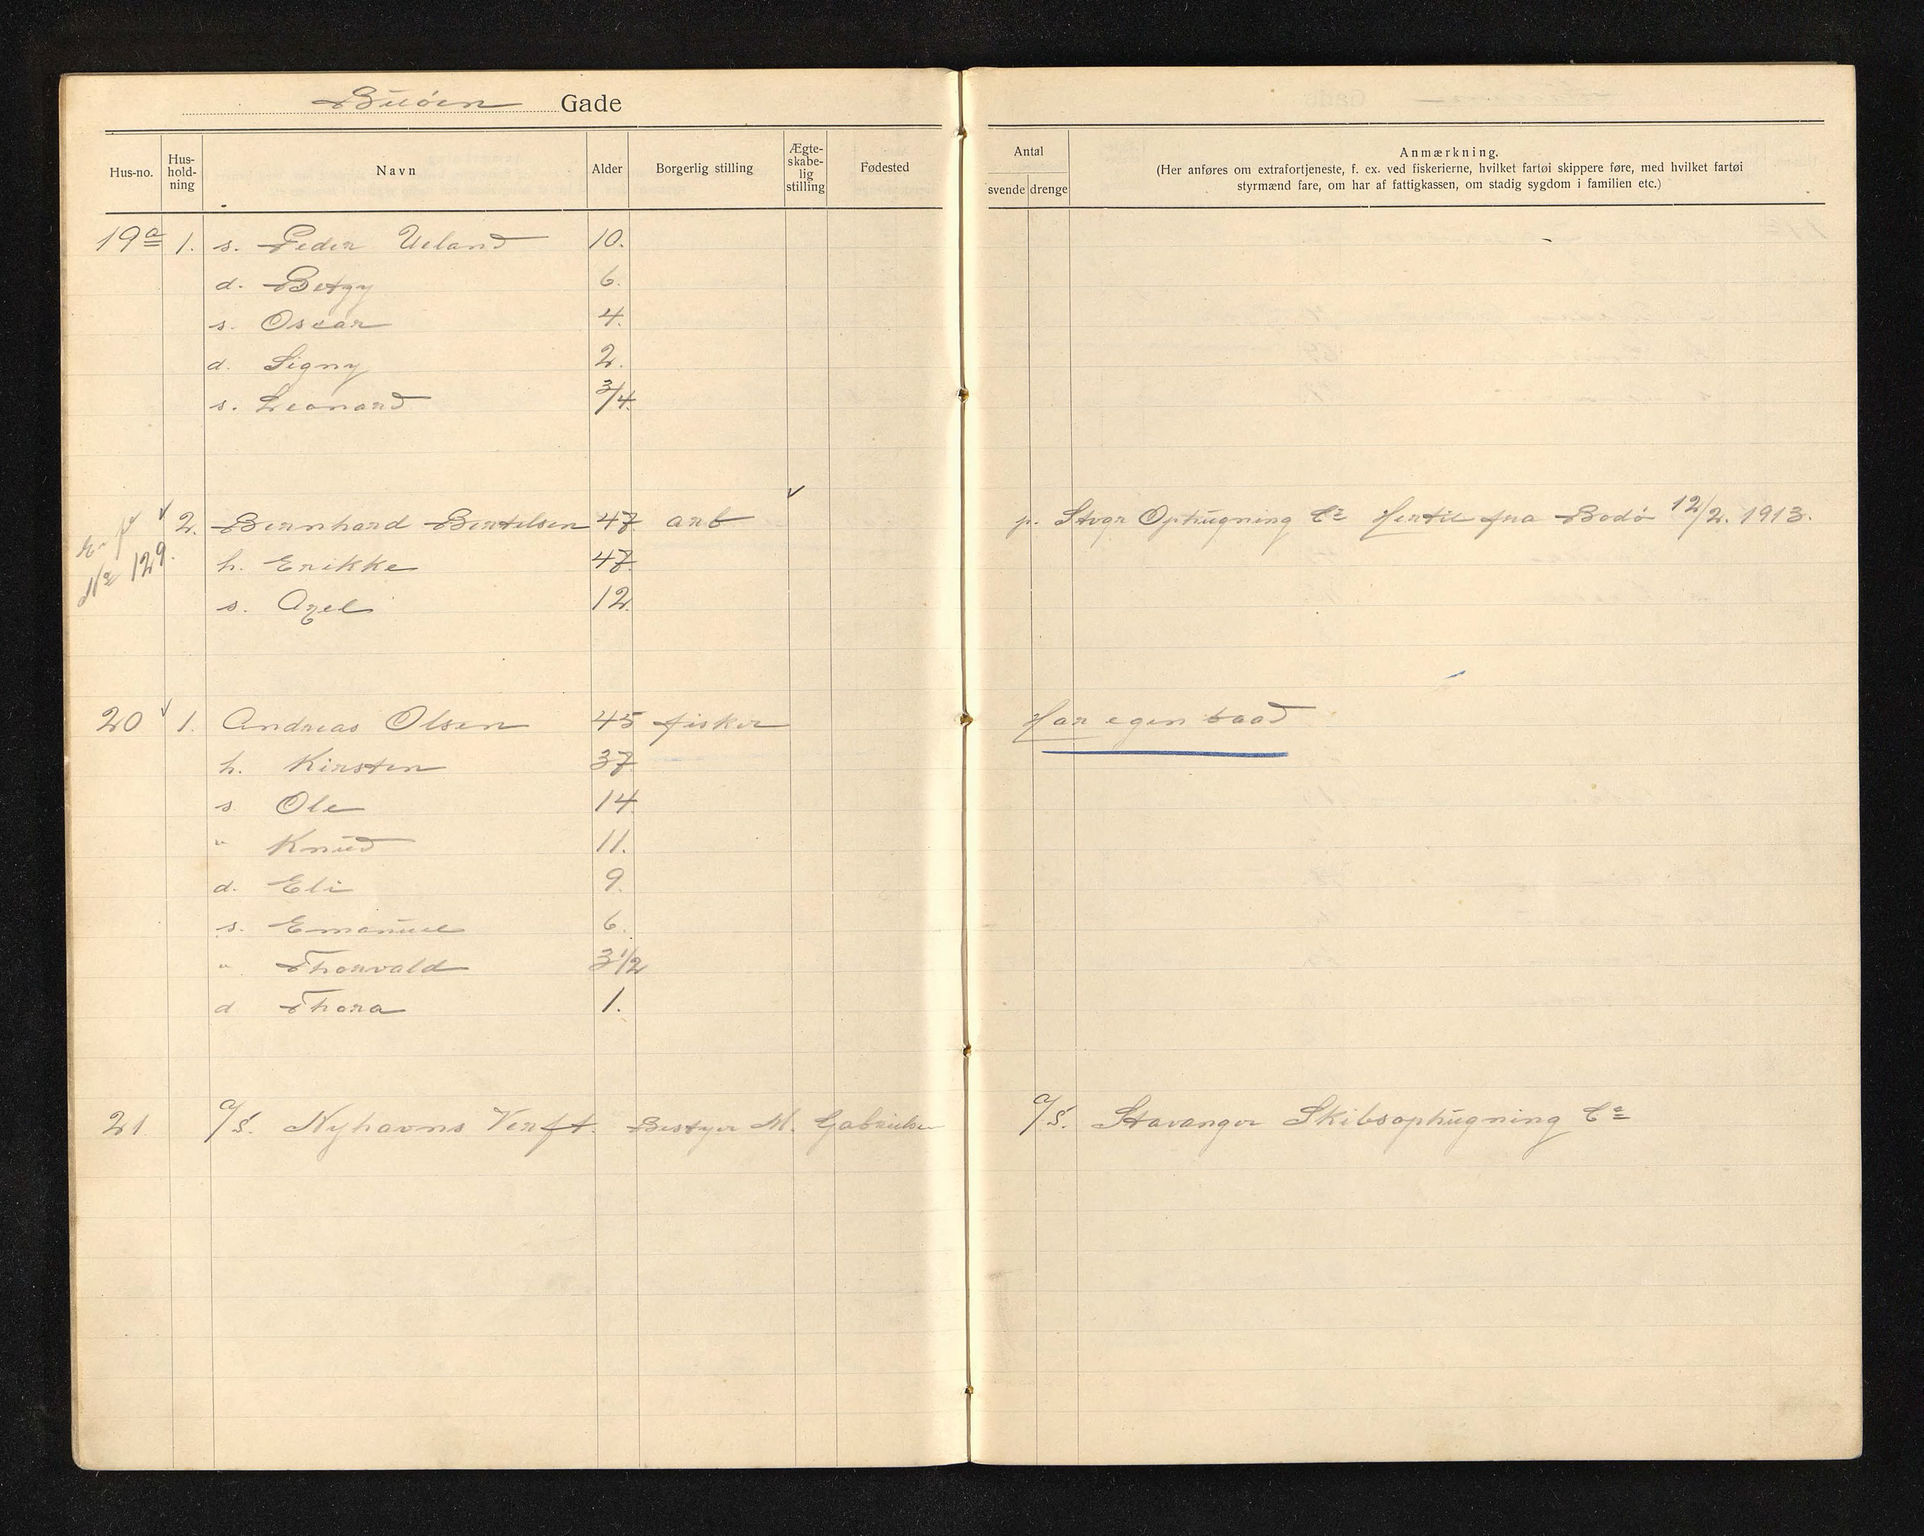 Buöen Gade
Hus-no. Hus-hold-ning Navn Alder Borgerlig stilling Ægte-skabe-lig stilling Fødested
19a 1. s. Peder Ueland 10.
d. Betzy 6.
s. Oscar 4.
d. Signy 2.
s. Leonard 3/4.
2. Bernhard Bertelsen 47 arb
No 129.
h. Erikke 47.
s. Axel 12.
20 1. Andreas Olsen 45 fisker
h. Kirsten 37.
s. Ole 14.
" Knud 11.
d. Eli 9.
s. Emanuel 6.
" Thorvald 3 1/2
d Thora 1.
21 A/S. Nyhavns Verft. Bestyer M. Gabrielsen
Antal
svende drenge
Anmærkning.
(Her anføres om extrafortjeneste, f. ex. ved fiskerierne, hvilket fartøi skippere føre, med hvilket fartøi
styrmænd fare, om har af fattigkassen, om stadig sygdom i familien etc.)
p. Stvgr Ophugning Co Hertil fra Bodö 12/2. 1913.
Har egen baad
A/S. Stavanger Skibsophugning Co